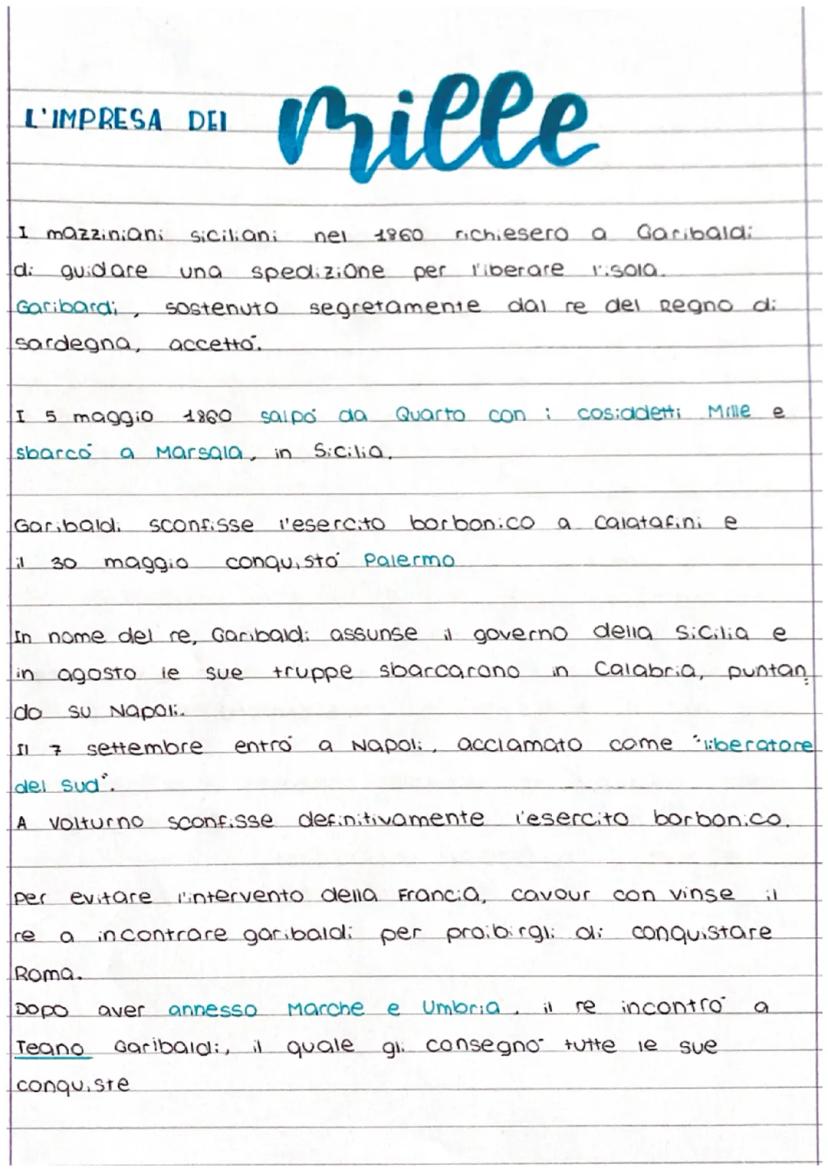 L'IMPRESA DEI mille
I mazziniani siciliani nel 1860 richiesero a Garibaldi
di guidare una spedizione per l'iberare l'isola.
Garibardi, sostenuto segretamente dal re del Regno di
sardegna, accettó.
I 5 maggio 1860 salpó da Quarto con i cosiddetti Mille e
sbarcó a Marsala, in Sicilia.
Garibaldi sconfisse l'esercito borbonico a Calatafini e
il 30 maggio conquistó Palermo
In nome del re, Garibaldi assunse il governo della Sicilia e
in agosto le sue truppe sbarcarono in Calabria, puntan
do su Napoli.
Il 7 settembre entró a Napoli, acclamato come "liberatore
del Sud".
A Volturno sconfisse definitivamente l'esercito borbonico.
Per evitare l'intervento della Francia, cavour con vinse il
re a incontrare garibaldi per proibirgli di conquistare
Roma.
Dopo aver annesso Marche e Umbria, il re incontró a
Teano Garibaldi, il quale gli consegnó tutte le sue
conquiste